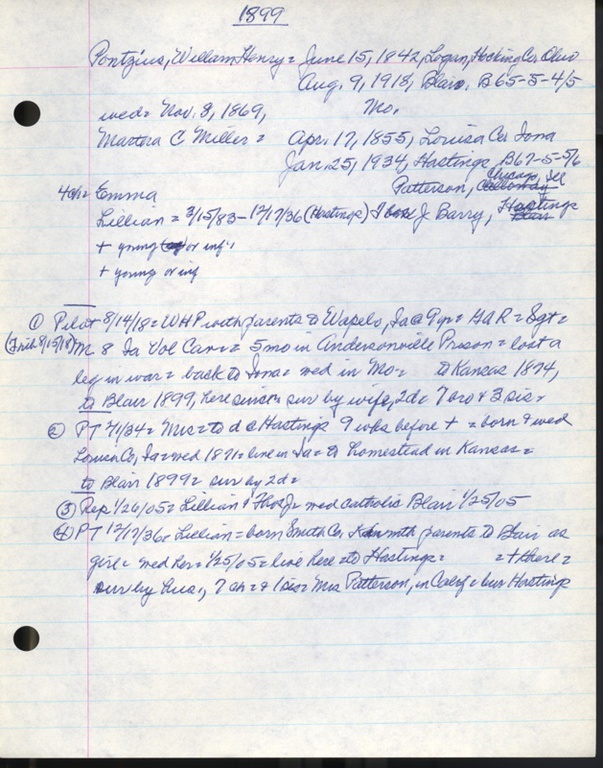 1899
Pontzius, William Henry = June 15, 1842, Logan, Hocking Co, Ohio
Aug. 9, 1918, Blair, B65-5-4/5
wed = Nov. 8, 1869, Mo.
Martha C Miller = Apr. 17, 1855, Louisa Co Iowa
Jan 25, 1934, Hastings, B67-5-5/6
Patterson, Calloway
4ch = Emma
Lillian = 3/15/83-12/17/36 (Hastings) J Barry, Hastings
Blair
+ young or inf
+ young or inf
① Pilot 8/14/18 = WHP with parents to Wapelo, Ia @ 9 yr = GAR = Sgt =
(Trib 8/15/18) M 8 Ia Vol Cav = 5 mo in Andersonville Prison = lost a
leg in war = back to Iowa = wed in Mo = to Kansas 1874,
to Blair 1899, here since = sur by wife, 2d = 7 bro & 3 sis =
② PT 2/1/34 = Mrs = to d @ Hastings 9 wks before + = born & wed
Louisa Co, Ia = wed 1871 = live in Ia = to homestead in Kansas =
to Blair 1899 = sur by 2d =
③ Rep 1/26/05 = Lillian & Thos J = wed Catholic Blair 1/25/05
④ PT 12/17/36 = Lillian = born Smith Co, K with parents to Blair as
girl = wed her = 1/25/05 = live here = to Hastings = = + there =
sur by hus, 7 ch = & 1 sis = Mrs Patterson, in Calif = bur Hastings